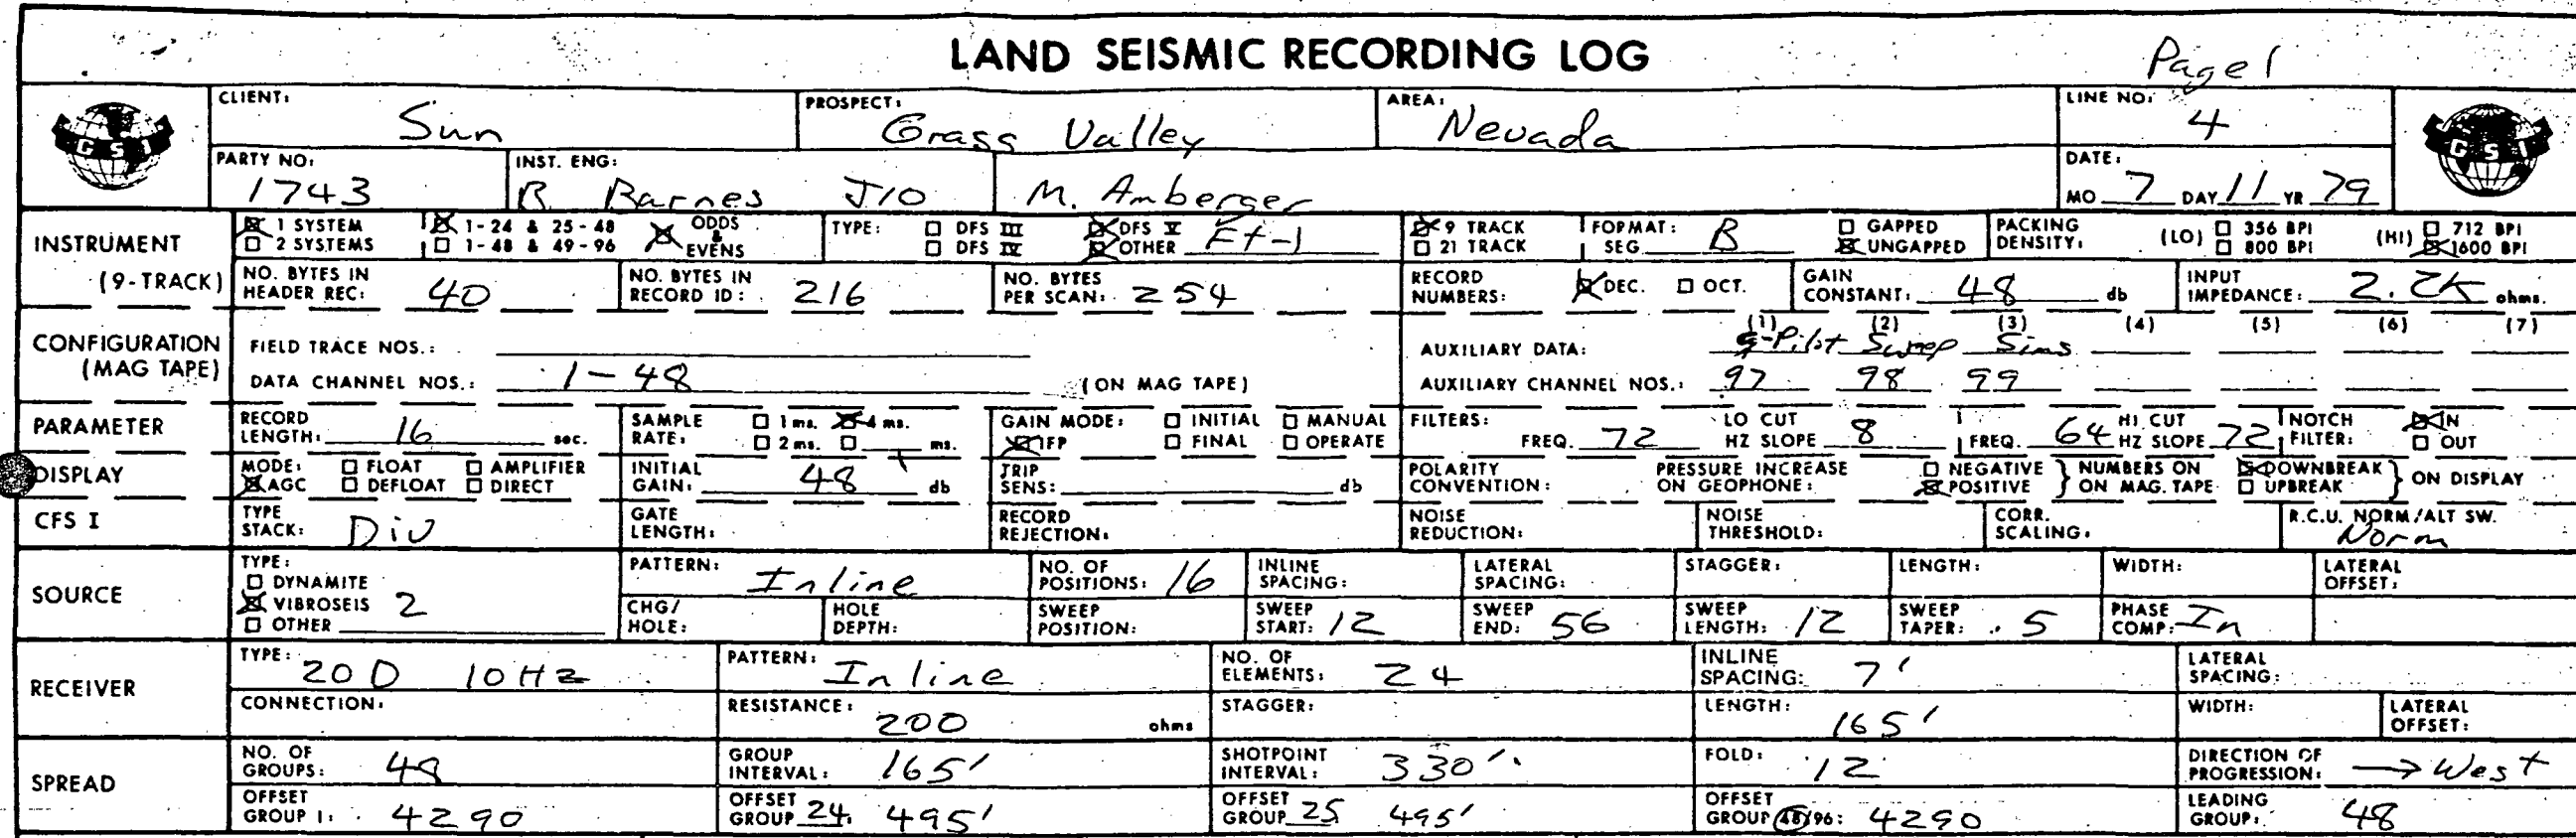 LAND SEISMIC RECORDING LOG
Page 1
CLIENT: Sun PROSPECT: Grass Valley AREA: Nevada LINE NO: 4
GSI GSI
PARTY NO: 1743 INST. ENG: R Barnes J10 M. Amberger DATE: MO 7 DAY 11 YR 79
INSTRUMENT (9-TRACK)
1 SYSTEM 1-24 & 25-48 ODDS & EVENS TYPE: DFS III DFS V 9 TRACK FORMAT: SEG B GAPPED PACKING DENSITY: (LO) 356 BPI (HI) 712 BPI
2 SYSTEMS 1-48 & 49-96 DFS IV OTHER Et-1 21 TRACK UNGAPPED 800 BPI 1600 BPI
NO. BYTES IN HEADER REC: 40 NO. BYTES IN RECORD ID: 216 NO. BYTES PER SCAN: 254 RECORD NUMBERS: DEC. OCT. GAIN CONSTANT: 48 db INPUT IMPEDANCE: 2.2K ohms.
CONFIGURATION (MAG TAPE)
(1) (2) (3) (4) (5) (6) (7)
FIELD TRACE NOS.: AUXILIARY DATA: Pilot Sweep Sims
DATA CHANNEL NOS.: 1-48 (ON MAG TAPE) AUXILIARY CHANNEL NOS.: 97 98 99
PARAMETER RECORD LENGTH: 16 sec. SAMPLE RATE: 1 ms. 4 ms. 2 ms. ms. GAIN MODE: INITIAL MANUAL IFP FINAL OPERATE FILTERS: FREQ. 72 LO CUT HZ SLOPE 8 FREQ. 64 HI CUT HZ SLOPE 72 NOTCH FILTER: IN OUT
DISPLAY MODE: FLOAT AMPLIFIER AGC DEFLOAT DIRECT INITIAL GAIN: 48 db TRIP SENS: db POLARITY CONVENTION: PRESSURE INCREASE ON GEOPHONE: NEGATIVE POSITIVE } NUMBERS ON ON MAG. TAPE DOWNBREAK UPBREAK } ON DISPLAY
CFS I TYPE STACK: Div GATE LENGTH: RECORD REJECTION: NOISE REDUCTION: NOISE THRESHOLD: CORR. SCALING. R.C.U. NORM/ALT SW. Norm
SOURCE
TYPE: DYNAMITE VIBROSEIS 2 OTHER PATTERN: Inline NO. OF POSITIONS: 16 INLINE SPACING: LATERAL SPACING: STAGGER: LENGTH: WIDTH: LATERAL OFFSET:
CHG/HOLE: HOLE DEPTH: SWEEP POSITION: SWEEP START: 12 SWEEP END: 56 SWEEP LENGTH: 12 SWEEP TAPER: .5 PHASE COMP: In
RECEIVER
TYPE: 20 D 10 Hz PATTERN: Inline NO. OF ELEMENTS: 24 INLINE SPACING: 7' LATERAL SPACING:
CONNECTION: RESISTANCE: 200 ohms STAGGER: LENGTH: 165' WIDTH: LATERAL OFFSET:
SPREAD
NO. OF GROUPS: 48 GROUP INTERVAL: 165' SHOTPOINT INTERVAL: 330' FOLD: 12 DIRECTION OF PROGRESSION: → West
OFFSET GROUP 1: 4290 OFFSET GROUP 24: 495' OFFSET GROUP 25 495' OFFSET GROUP 48/96: 4290 LEADING GROUP: 48